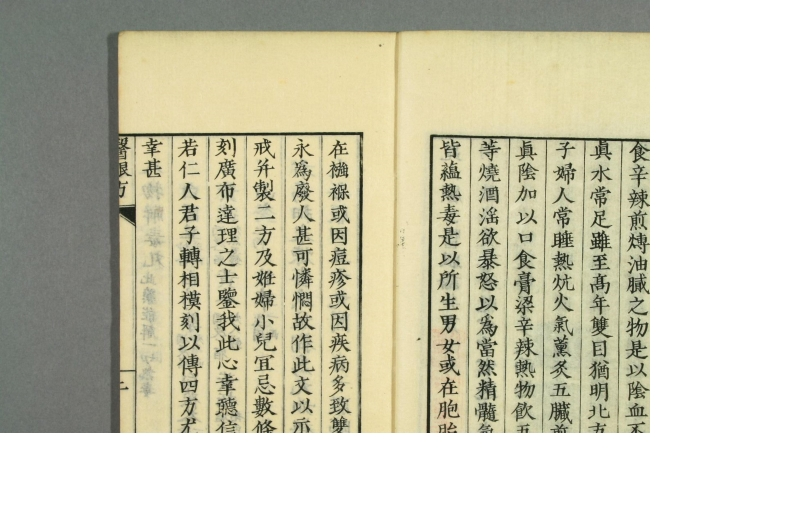 食辛辣煎煿油膩之物是以陰血不
眞水常足雖至高年雙目猶明北方
子婦人常睡熱炕火氣薰炙五臟煎
眞陰加以口食膏粱辛辣熱物飲五
等燒酒淫欲暴怒以爲當然精髓氣
皆蘊熱毒是以所生男女或在胞胎
在襁褓或因痘疹或因疾病多致雙
永爲廢人甚可憐憫故作此文以示
戒并製二方及姙婦小兒宜忌數條
刻廣布達理之士鑒我此心幸聽信
若仁人君子轉相模刻以傳四方尤
幸甚
醫眼方
二